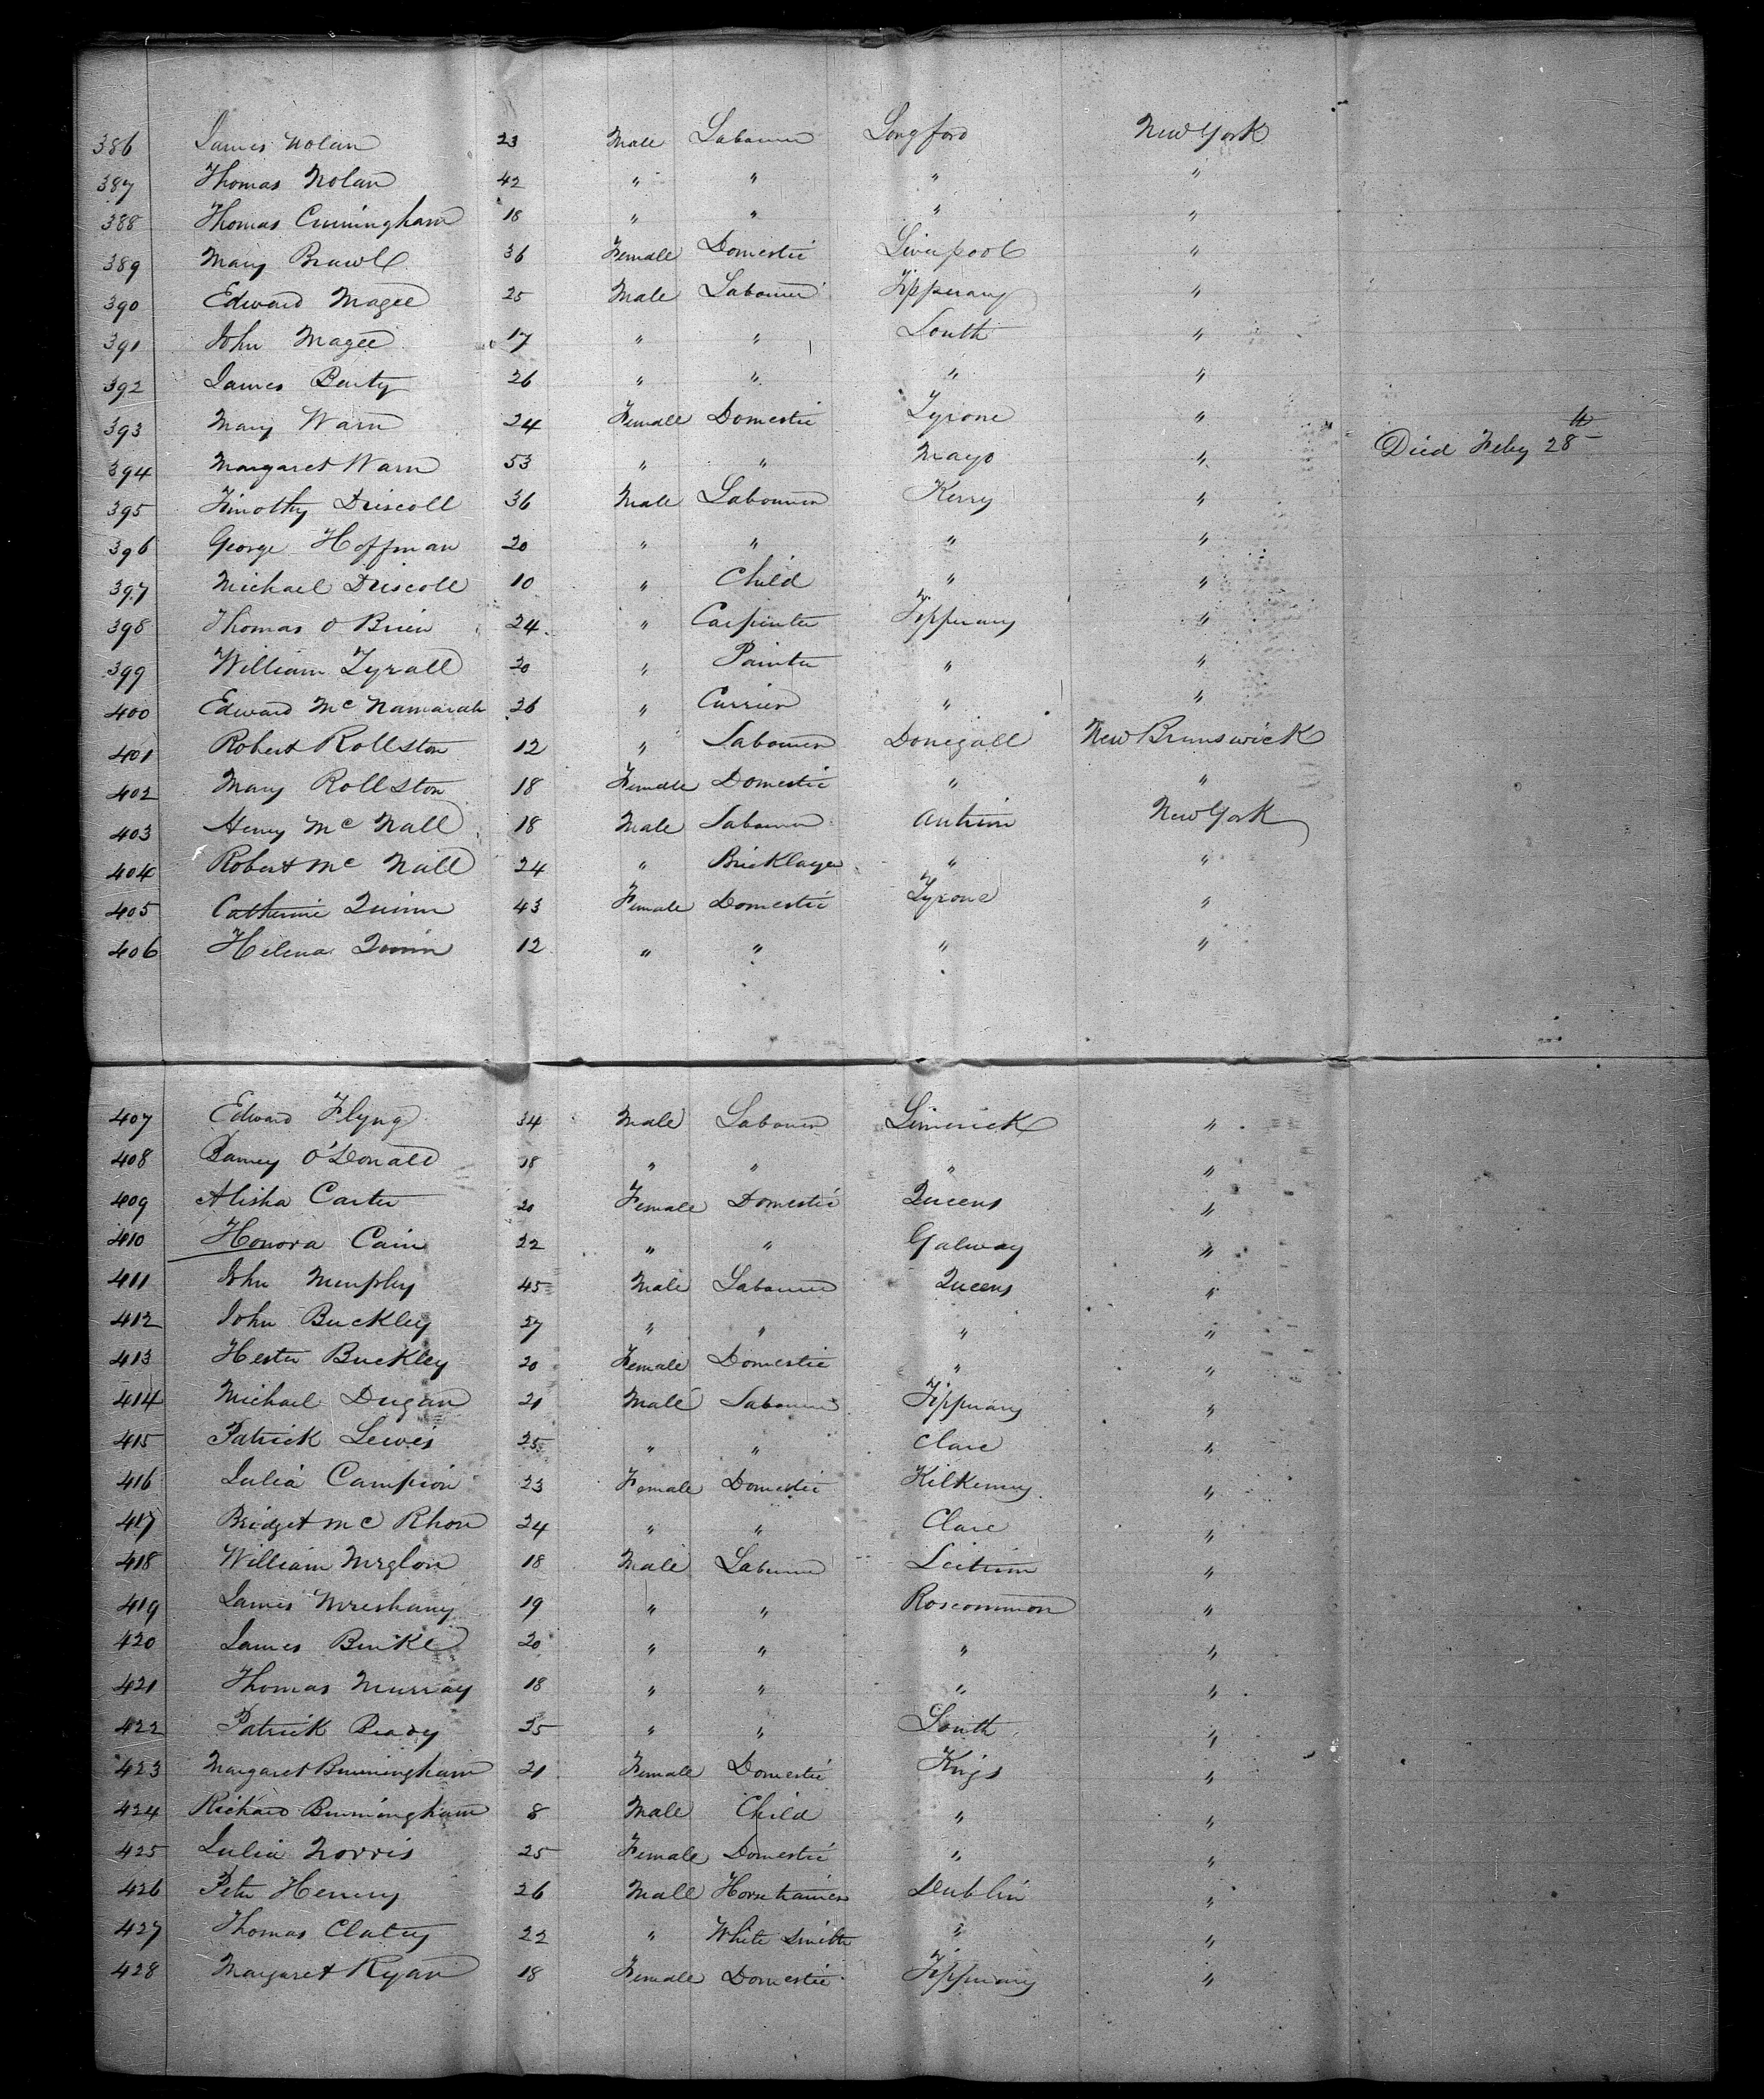 386 James Nolan 23 Male Labourer Longford New York
387 Thomas Nolan 42 " " " "
388 Thomas Cuningham 18 " " " "
389 Mary Brawl 36 Female Domestic Liverpool "
390 Edward Magee 25 Male Labourer Tipperary "
391 John Magee 17 " " Louth "
392 James Benty 26 " " " "
393 Mary Warn 24 Female Domestic Tyrone "
394 Margaret Warn 53 " " Mayo " Died Feby 28th
395 Timothy Driscoll 36 Male Labourer Kerry "
396 George Hoffman 20 " " " "
397 Michael Driscoll 10 " Child " "
398 Thomas O Brien 24 " Carpenter Tipperary "
399 William Tyrall 20 " Painter " "
400 Edward Mc Namarah 26 " Currier " "
401 Robert Rollston 12 " Labourer Donegall New Brunswick
402 Mary Rollston 18 Female Domestic " "
403 Henry Mc Nall 18 Male Labourer Antrim New York
404 Robert Mc Nall 24 " Bricklayer " "
405 Catherine Quinn 43 Female Domestic Tyrone "
406 Helena Quinn 12 " " " "
407 Edward Flyng 34 Male Labourer Limerick "
408 Barney O'Donald 18 " " " "
409 Alisha Carter 20 Female Domestic Queens "
410 Honora Cain 22 " " Galway "
411 John Murphy 45 Male Labourer Queens "
412 John Buckley 27 " " " "
413 Hester Buckley 20 Female Domestic " "
414 Michael Dugan 21 Male Labourer Tipperary "
415 Patrick Lewis 25 " " Clare "
416 Julia Campion 23 Female Domestic Kilkenny "
417 Bridget Mc Rhon 24 " " Clare "
418 William 18 Male Labourer Leitrim "
419 James 19 " " Roscommon "
420 James Burke 20 " " " "
421 Thomas Murray 18 " " " "
422 Patrick Ready 25 " " Louth "
423 Margaret Burmingham 21 Female Domestic Kings "
424 Richard Burmingham 8 Male Child " "
425 Julia Norris 25 Female Domestic " "
426 Peter Henery 26 Male Horse trainer Dublin "
427 Thomas Clatey 22 " White Smith " "
428 Margaret Ryan 18 Female Domestic Tipperary "